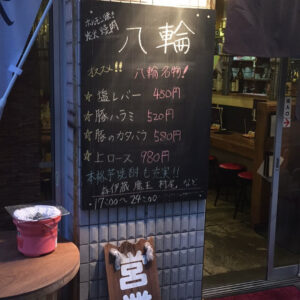 ホルモン焼
炭火焼肉
八輪
オススメ!! 八輪名物!
☆ 塩レバー 450円
☆ 豚ハラミ 520円
☆ 豚のカタバラ 580円
☆ 上ロース 980円
本格芋焼酎も充実!!
森伊蔵 魔王 村尾 など
17:00〜24:00
営業